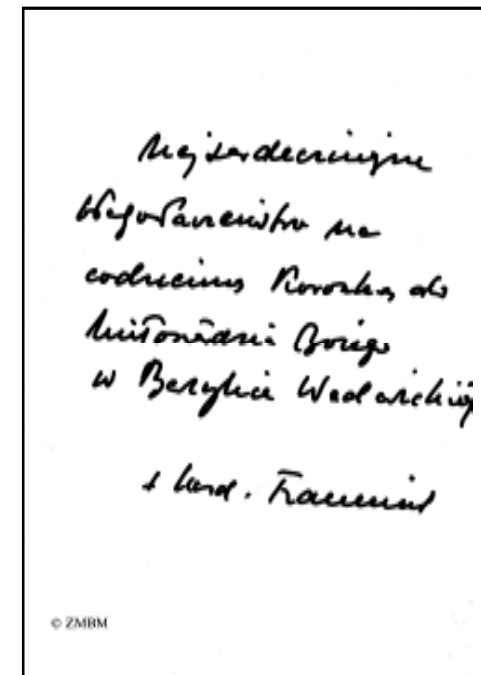 Najserdeczniejsze
błogosławieństwo na
codzienną Koronkę do
Miłosierdzia Bożego
w Bazylice Wadowickiej
+ kard. Franciszek
© ZMBM